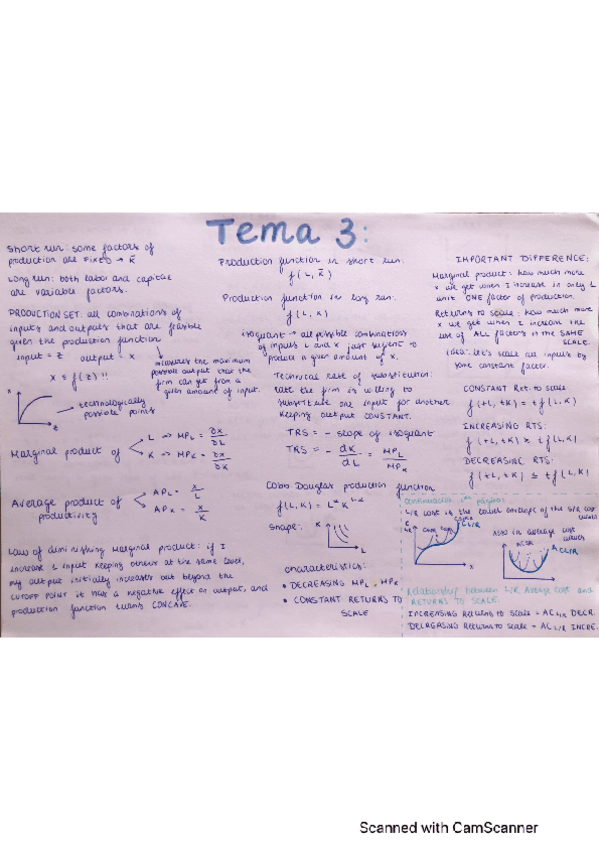 Tema 3:
Short run: some factors of
production are FIXED → K̄
Long run: both labor and capital
are variable factors.
PRODUCTION SET: all combinations of
inputs and outputs that are feasible
given the production function
input = z output = x
x ≤ f(z) !!
measures the maximum
possible output that the
firm can get from a
given amount of input.
x
z
technologically
possible points
Marginal product of
L => MPL = ∂x/∂L
K => MPK = ∂x/∂K
Average product of
productivity
APL = x/L
APK = x/K
Law of diminishing marginal product: if I
increase 1 input keeping others at the same level,
my output initially increases but beyond the
cutoff point it has a negative effect on output, and
production function turns CONCAVE.
Production function in short run:
f(L, K̄)
Production function in long run:
f(L, K)
isoquant → all possible combinations
of inputs L and K just sufficient to
produce a given amount of x.
Technical rate of substitution:
rate the firm is willing to
substitute one input for another
keeping output CONSTANT.
TRS = - slope of isoquant
TRS = - dK/dL = MPL/MPK
Cobb Douglas production function
f(L,K) = L^α K^1-α
shape:
K
L
characteristics:
• DECREASING MPL, MPK
• CONSTANT RETURNS TO
SCALE
IMPORTANT DIFFERENCE:
Marginal product: how much more
x we get when I increase in only 1
unit ONE factor of production.
Returns to scale: how much more
x we get when I increase the
use of ALL factors in the SAME
SCALE.
idea: let's scale all inputs by
some constant factor.
CONSTANT Ret. to scale
f(tL, tK) = tf(L,K)
INCREASING RTS:
f(tL, tK) > tf(L,K)
DECREASING RTS:
f(tL, tK) ≤ tf(L,K)
L/R cost is the lower envelope of the S/R cost
curves
C L/R
x
Also in average cost
curves
AC L/R
Relationship between L/R Average cost and
RETURNS TO SCALE.
INCREASING Returns to scale = AC L/R DECR.
DECREASING Returns to scale = AC L/R INCRE.
Scanned with CamScanner